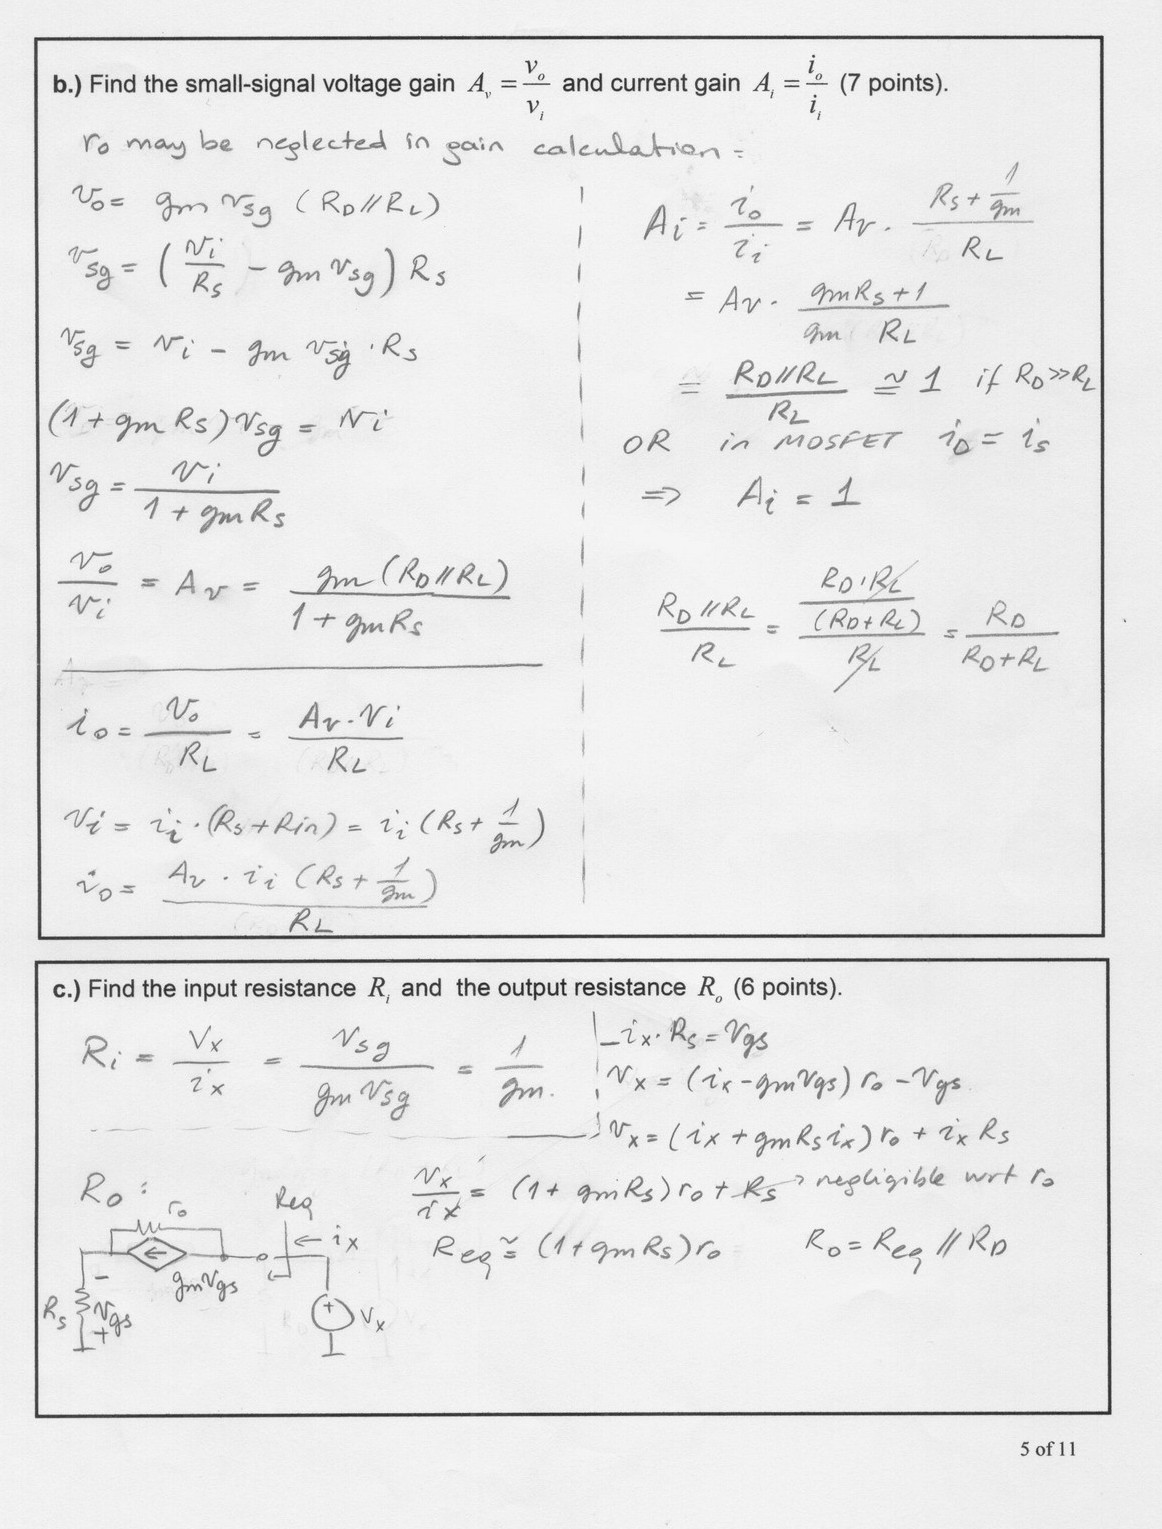 b.) Find the small-signal voltage gain A_v = v_o/v_i and current gain A_i = i_o/i_i (7 points).
ro may be neglected in gain calculation =
v_o = gm v_sg (R_D//R_L)
v_sg = (v_i/R_s - gm v_sg) R_s
v_sg = v_i - gm v_sg · R_s
(1 + gm R_s) v_sg = v_i
v_sg = v_i/(1 + gm R_s)
v_o/v_i = A_v = gm (R_D//R_L)/(1 + gm R_s)
i_o = v_o/R_L = A_v · v_i/R_L
v_i = i_i · (R_s + R_in) = i_i (R_s + 1/gm)
i_o = A_v · i_i (R_s + 1/gm)/R_L
A_i = i_o/i_i = A_v · (R_s + 1/gm)/R_L
= A_v · (gm R_s + 1)/(gm R_L)
= R_D//R_L/R_L ≅ 1 if R_D >> R_L
OR in MOSFET i_D = i_s
=> A_i = 1
R_D//R_L/R_L = (R_D · R_L/(R_D + R_L))/R_L = R_D/(R_D + R_L)
c.) Find the input resistance R_i and the output resistance R_o (6 points).
R_i = V_x/i_x = v_sg/(gm v_sg) = 1/gm.
R_o :
ro
Req
i_x
gm vgs
R_s
-
vgs
+
+
V_x
-i_x · R_s = Vgs
V_x = (i_x - gm Vgs) ro - Vgs
V_x = (i_x + gm R_s i_x) ro + i_x R_s
V_x/i_x = (1 + gm R_s) ro + R_s negligible wrt ro
Req ≅ (1 + gm R_s) ro
R_o = Req // R_D
5 of 11